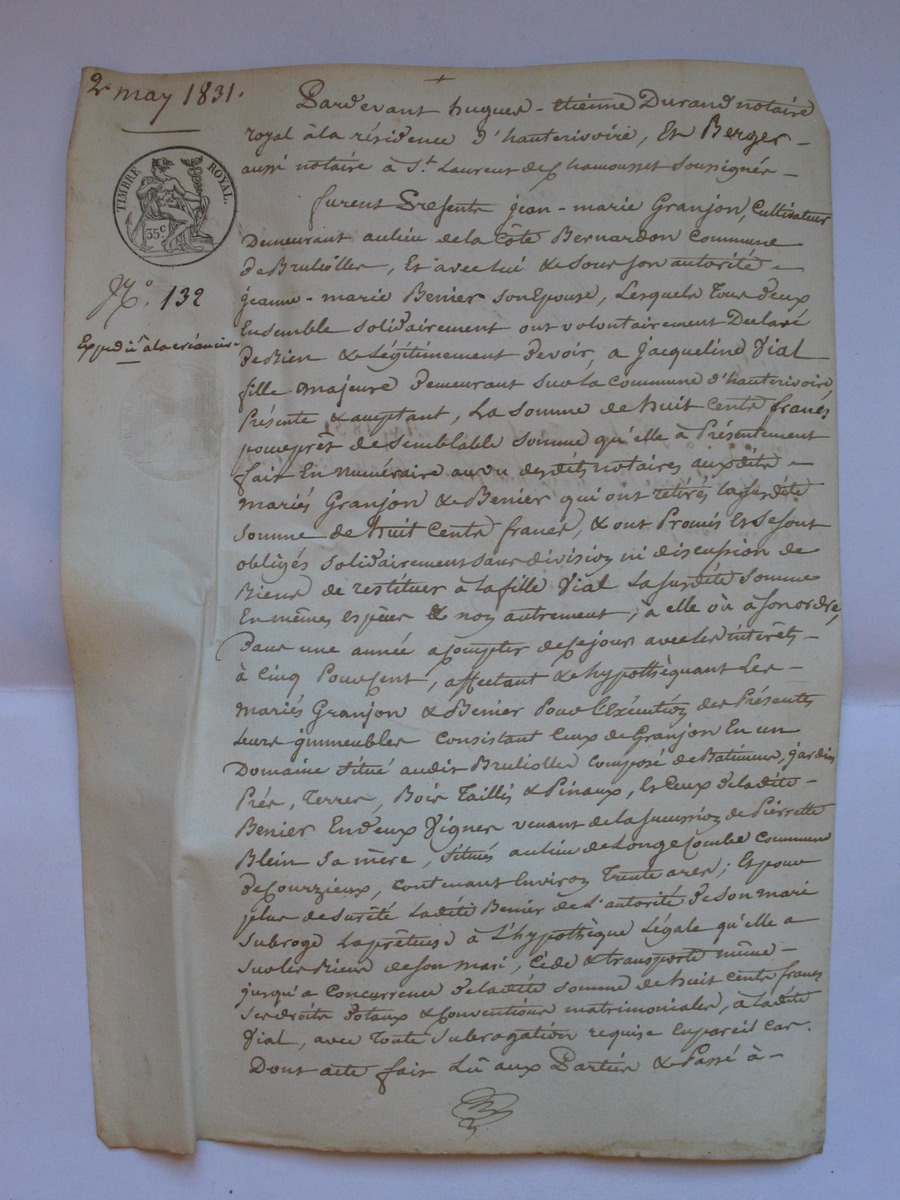 2 may 1831.
Pardevant hugues-etiênne Durand notaire
royal à la résidence d'hauterivoire, Et Berger
aussi notaire à St. Laurent de Chamousset soussignés
TIMBRE ROYAL.
35c
furent Présents jean-marie Granjon Cultivateur
Demeurant au lieu de la Côte Bernardon Commune
de Brulioller, Et avec lui & sous son autorité
No. 132
jeanne-marie Benier son Epouse, Lesquels Tous deux
Ensemble solidairement ont volontairement Declaré
Exped.on à la créancière
de Bien & Légitimement devoir, a jacqueline Vial
fille majeure demeurant sur la commune d'hauterivoire,
Présente & acceptant, La somme de huit cents francs
pour prêt de semblable somme qu'elle à Présentement
fait En numéraire au vu des dits notaires aux dits
mariés Granjon & Benier qui ont retirés la susdite
somme de huit cents francs, & ont Promis Et se sont
obligés solidairement sans division ni discussion de
Biens de restituer à la fille Vial La susdite somme
En mêmes espèces & non autrement, à elle où à son ordre,
Dans une année à compter de ce jour avec les intérêts
à Cinq Pour Cent, affectant & hypothèquant Les
mariés Granjon & Benier Pour L'Exécution des Présentes
Leurs immeubles consistant Ceux de Granjon En un
Domaine situé audit Brulioller composé de Batimens, jardin
Prés, Terres, Bois Taillis & Pinaux, Et Ceux de la dite
Benier En deux Vignes venant de la succession de Pierrette
Blein sa mère, situés au lieu de Longe Combe commune
de Courzieux, contenant Environ Trente ares; Et pour
plus de sureté La dite Benier de L'autorité de son mari
subroge La prêteuse à L'hypothèque Légale qu'elle a
sur les Biens de son mari, Cède & transporte même
jusqu'a concurrence de la dite somme de huit cents francs
ses droits dotaux & conventions matrimoniales, à la dite
Vial, avec Toute subrogation requise En pareil cas.
Dont acte fait Lû aux Parties & Passé à